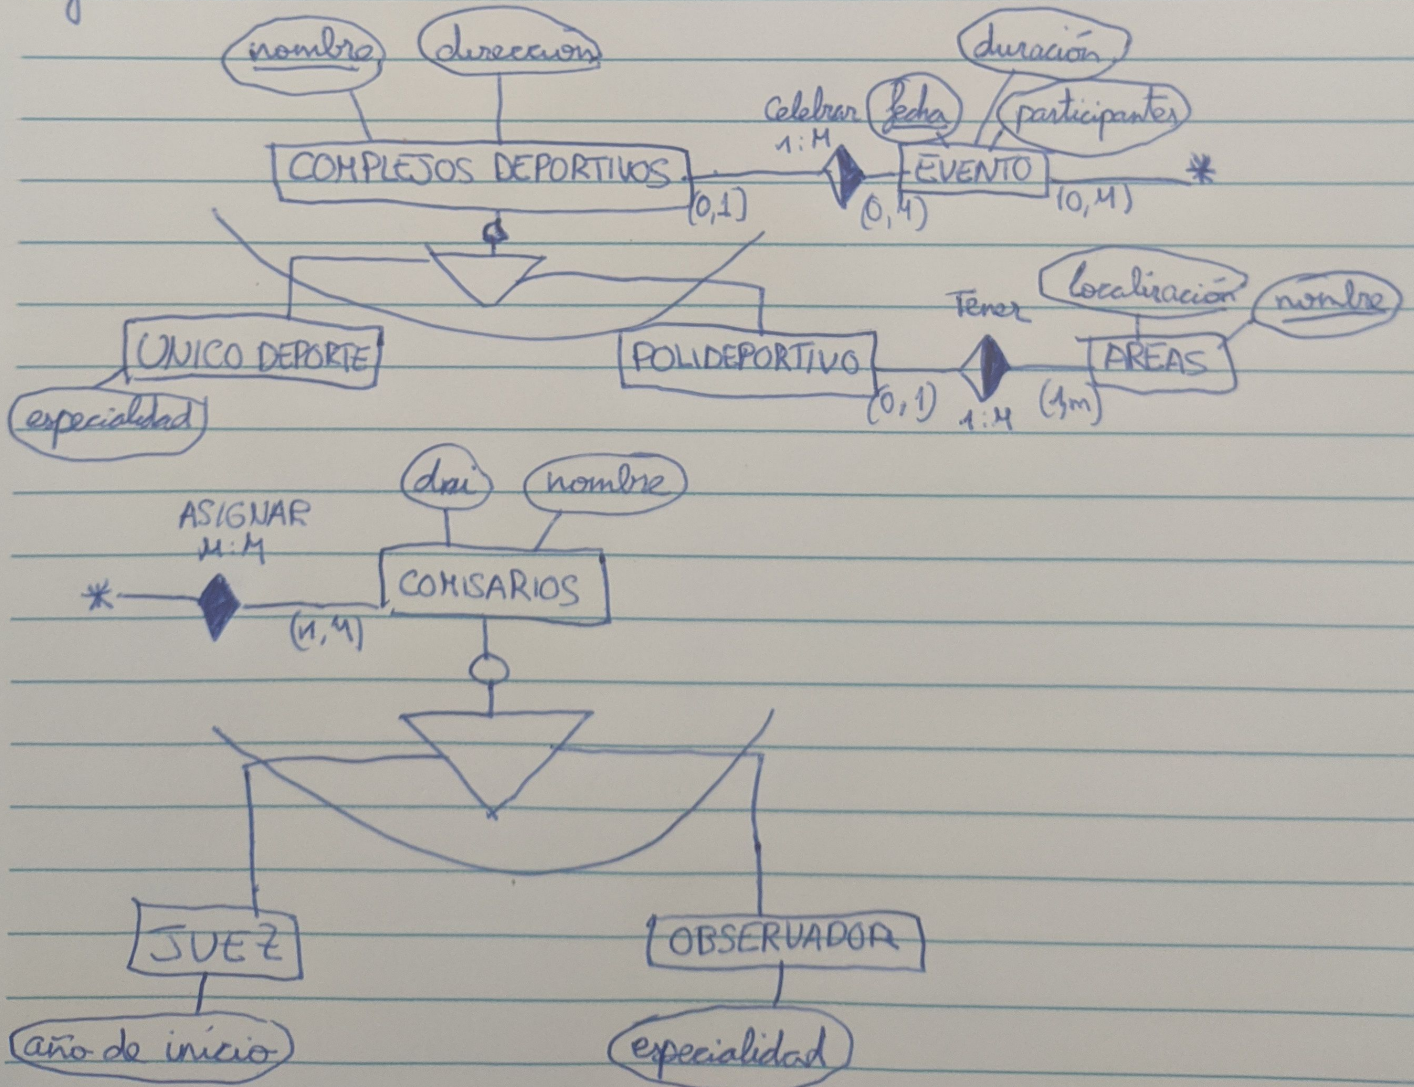 nombre dirección duración
Celebrar fecha participantes
1:M
COMPLEJOS DEPORTIVOS EVENTO *
(0,1) (0,M) (0,M)
Tener localización nombre
UNICO DEPORTE POLIDEPORTIVO AREAS
especialidad (0,1) 1:M (1,m)
dni nombre
ASIGNAR
M:M
* COMISARIOS
(1,M)
JUEZ OBSERVADOR
año de inicio especialidad